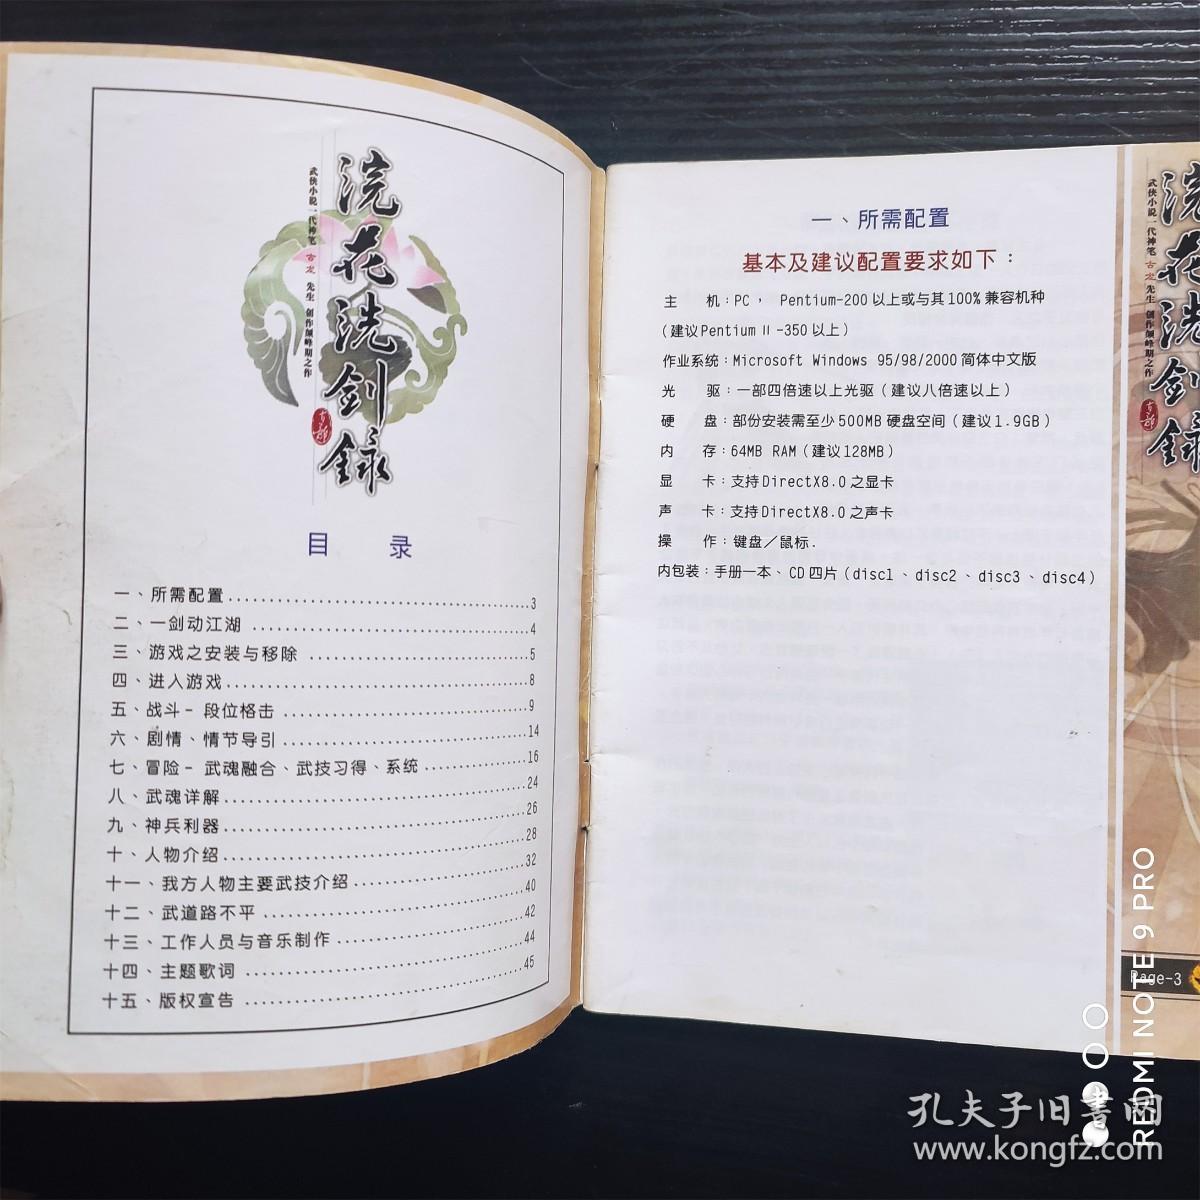 浣花洗剑录
武侠小说一代神笔 古龙 先生 创作颠峰期之作
目 录
一、所需配置 3
二、一剑动江湖 4
三、游戏之安装与移除 5
四、进入游戏 8
五、战斗-段位格击 9
六、剧情、情节导引 14
七、冒险-武魂融合、武技习得、系统 16
八、武魂详解 24
九、神兵利器 26
十、人物介绍 28
十一、我方人物主要武技介绍 32
十二、武道路不平 40
十三、工作人员与音乐制作 42
十四、主题歌词 44
十五、版权宣告 45
一、所需配置
基本及建议配置要求如下：
主 机：PC， Pentium-200 以上或与其100%兼容机种
（建议Pentium II -350 以上）
作业系统：Microsoft Windows 95/98/2000 简体中文版
光 驱：一部四倍速以上光驱（建议八倍速以上）
硬 盘：部份安装需至少500MB 硬盘空间（建议1.9GB）
内 存：64MB RAM（建议128MB）
显 卡：支持DirectX8.0 之显卡
声 卡：支持DirectX8.0 之声卡
操 作：键盘／鼠标.
内包装：手册一本、CD 四片（disc1、disc2、disc3、disc4）
浣花洗剑录
武侠小说一代神笔 古龙 先生 创作颠峰期之作
Page-3
REDMI NOTE 9 PRO
孔夫子旧書网
www.kongfz.com